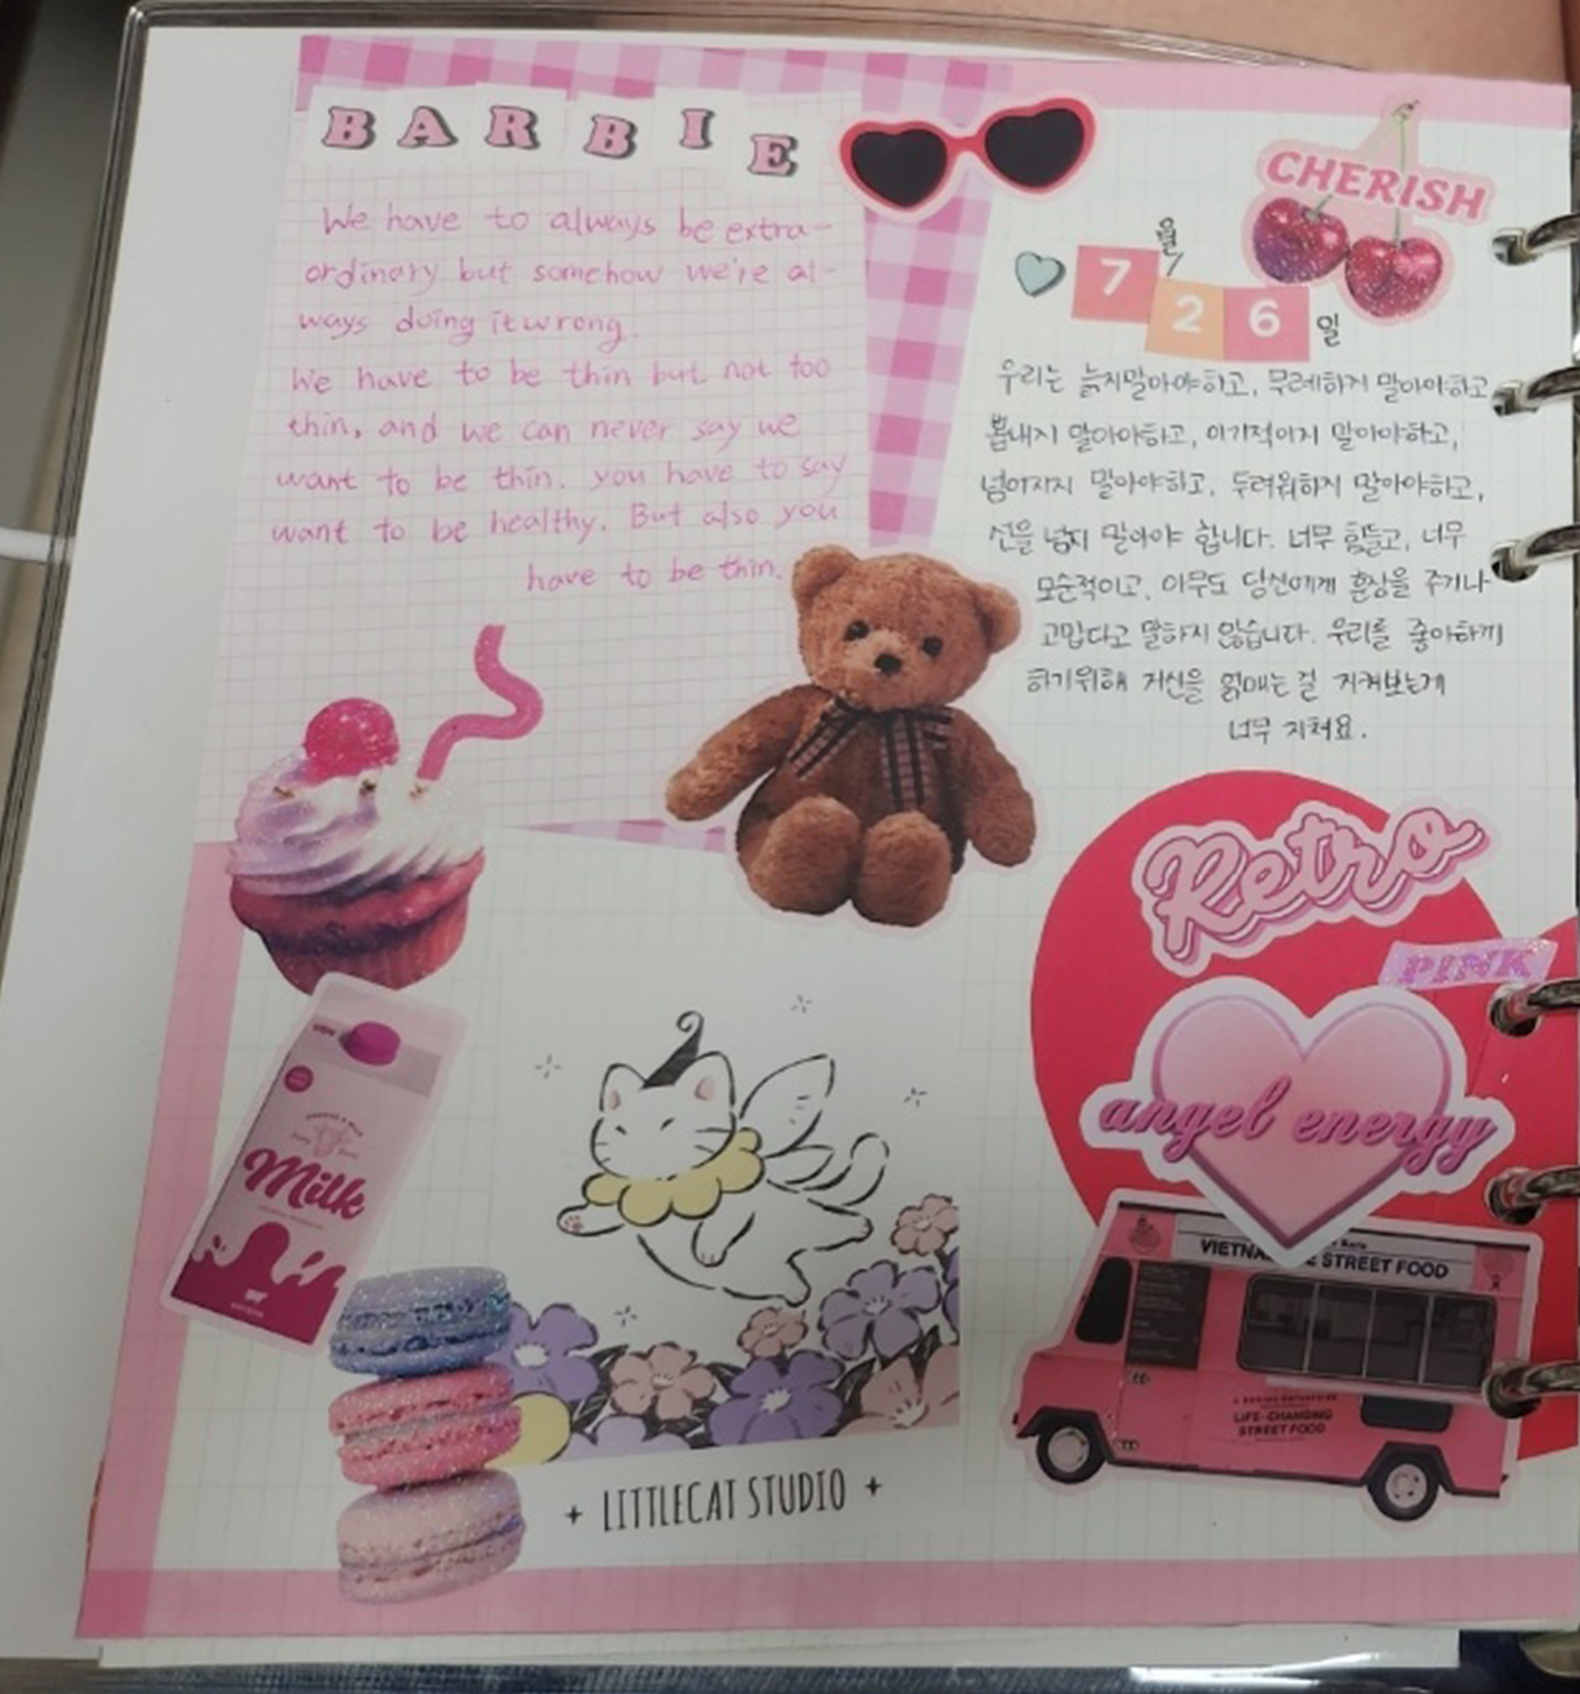 BARBIE
We have to always be extra-
ordinary but somehow we're al-
ways doing it wrong.
We have to be thin but not too
thin, and we can never say we
want to be thin. you have to say
want to be healthy. But also you
have to be thin.
CHERISH
7월/26일
우리는 늙지말아야하고, 무례하지 말아야하고
뽐내지 말아야하고, 이기적이지 말아야하고,
넘어지지 말아야하고, 두려워하지 말아야하고,
선을 넘지 말아야 합니다. 너무 힘들고, 너무
모순적이고, 아무도 당신에게 훈장을 주거나
고맙다고 말하지 않습니다. 우리를 좋아하게
하기위해 자신을 얽매는걸 지켜보는게
너무 지쳐요.
Retro
PINK
angel energy
Milk
STREET FOOD
LIFE-CHANGING
STREET FOOD
+ LITTLECAT STUDIO +